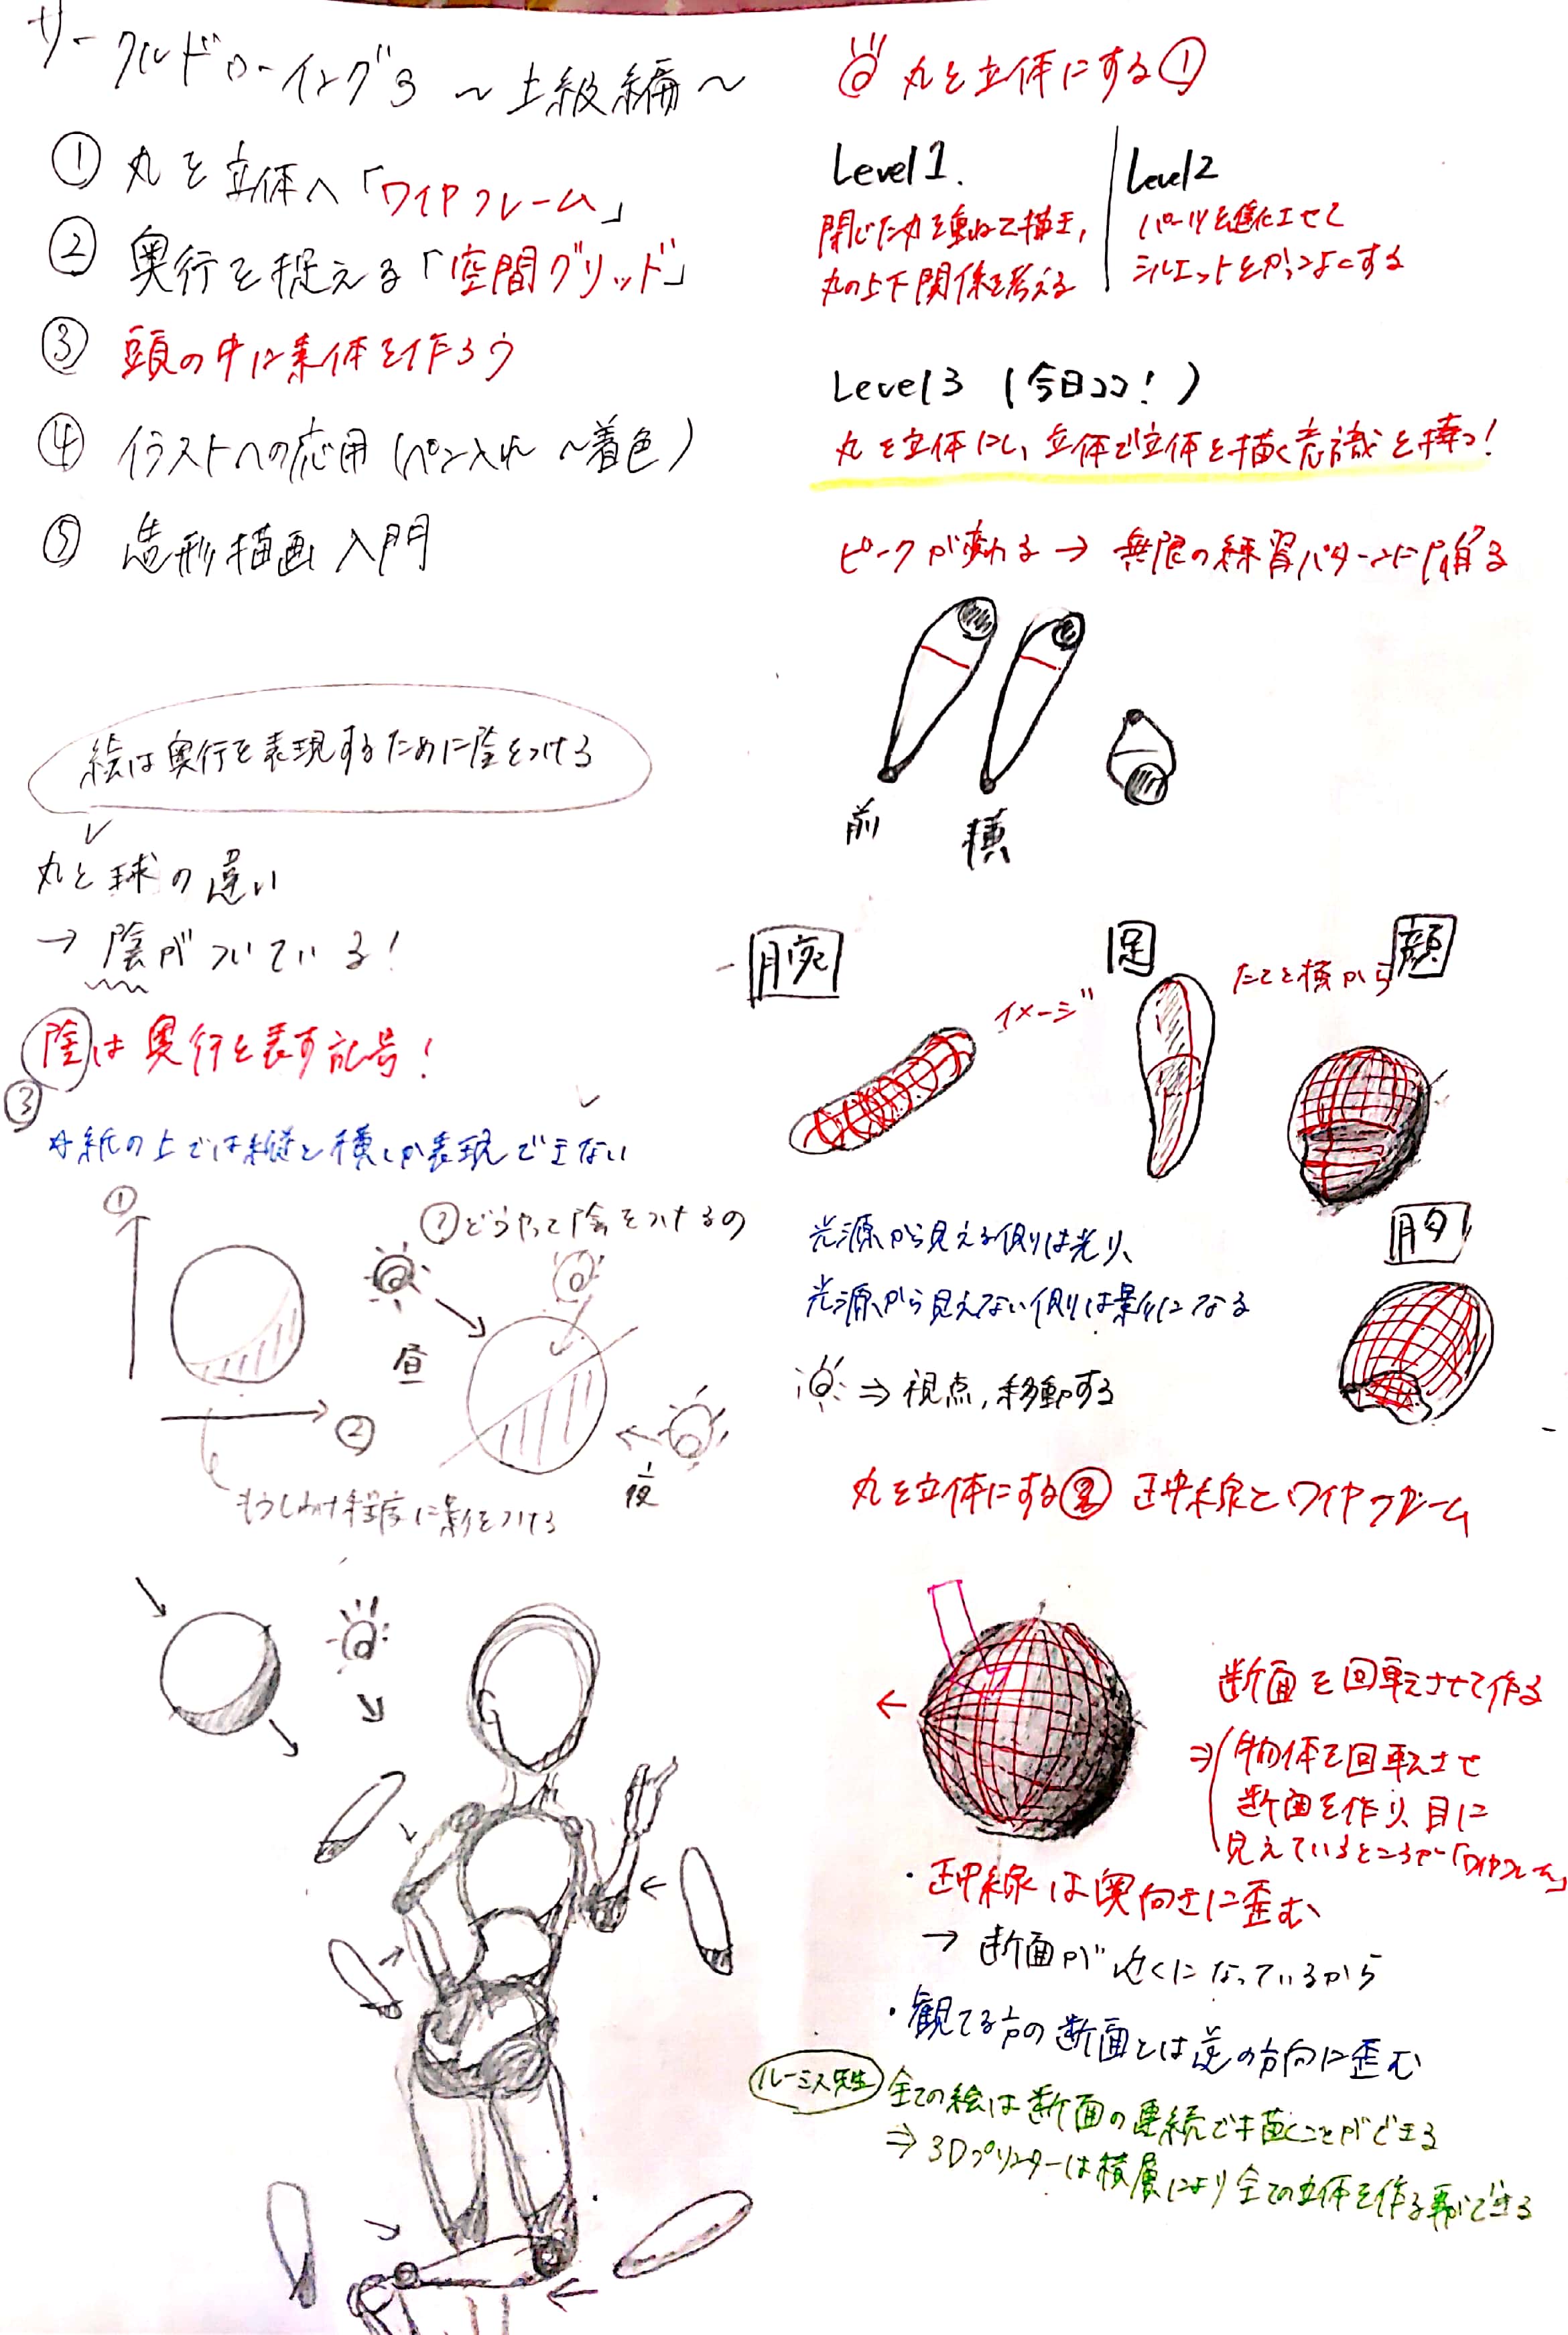 サークルドローイング3 ～上級編～
① 丸を立体へ「ワイヤフレーム」
② 奥行を捉える「空間グリッド」
③ 頭の中に素体を作ろう
④ イラストへの応用(ペン入れ ～着色)
⑤ 造形描画入門
絵は奥行を表現するために陰をつける
丸と球の違い
→ 陰がついている!
陰は奥行を表す記号!
③
紙の上では縦と横しか表現できない
①
②
もうしわけ程度に影をつける
どうやって陰をつけるの
昼
夜
丸を立体にする①
Level 1.
閉じた丸を重ねて描き,
丸の上下関係を考える
Level 2
パーツを進化させて
シルエットをかっこよくする
Level 3 (今日ココ!)
丸を立体にし、立体で立体を描く意識を持つ!
ピークが変わる → 無限の練習パターンに陥る
前
横
腕
イメージ
足
たてと横から
顔
胸
光源から見える側は光り、
光源から見えない側は影になる
⇒ 視点,移動する
丸を立体にする② 正中線とワイヤフレーム
断面を回転させて作る
⇒ 物体を回転させ
断面を作り、目に
見えているところが「ワイヤフレーム」
・正中線は奥向きに歪む
→ 断面が近くになっているから
・観てる方の断面とは逆の方向に歪む
ルーミス先生
全ての絵は断面の連続で描くことができる
⇒ 3Dプリンターは積層により全ての立体を作る事ができる